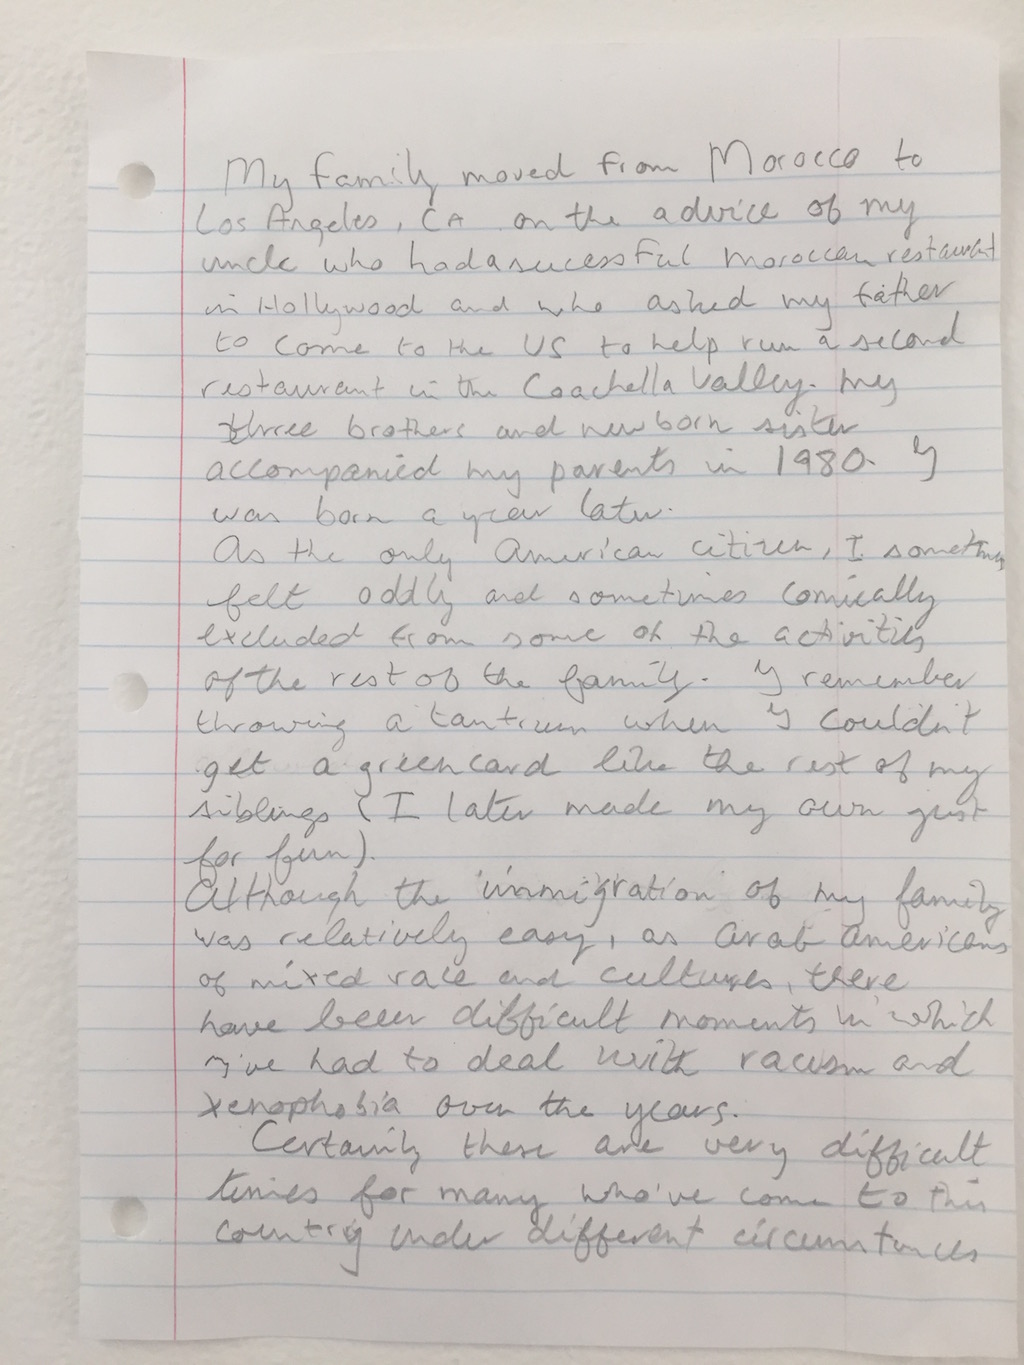 My family moved from Morocco to
Los Angeles, CA on the advice of my
uncle who had a sucessful Moroccan restaurant
in Hollywood and who asked my father
to come to the US to help run a second
restaurant in the Coachella Valley. My
three brothers and newborn sister
accompanied my parents in 1980. I
was born a year later.
As the only American citizen, I sometimes
felt oddly and sometimes comically
excluded from some of the activities
of the rest of the family. I remember
throwing a tantrum when I couldn't
get a green card like the rest of my
siblings (I later made my own just
for fun).
Although the immigration of my family
was relatively easy, as Arab Americans
of mixed race and cultures, there
have been difficult moments in which
I've had to deal with racism and
xenophobia over the years.
Certainly these are very difficult
times for many who've come to this
country under different circumstances